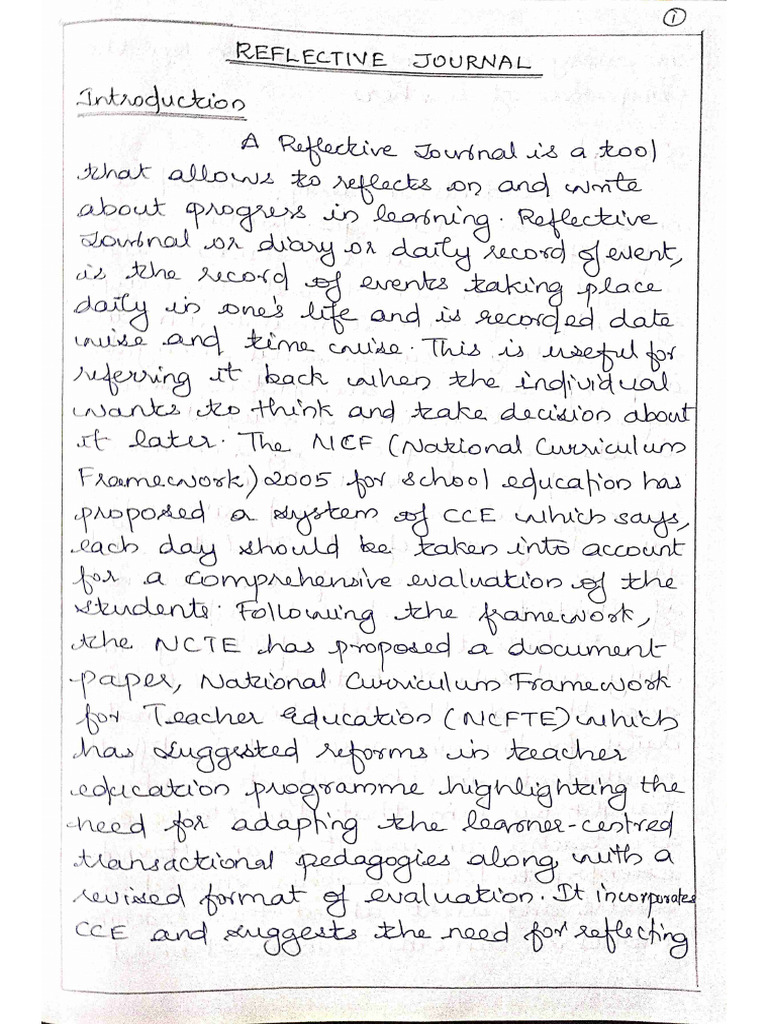 1
REFLECTIVE JOURNAL
Introduction
A Reflective Journal is a tool
that allows to reflects on and write
about progress in learning. Reflective
Journal or diary or daily record of event,
is the record of events taking place
daily in one's life and is recorded date
wise and time wise. This is useful for
referring it back when the individual
wants to think and take decision about
it later. The NCF (National Curriculum
Framework) 2005 for school education has
proposed a system of CCE which says,
each day should be taken into account
for a comprehensive evaluation of the
students. Following the framework,
the NCTE has proposed a document
paper, National Curriculum Framework
for Teacher Education (NCFTE) which
has suggested reforms in teacher
education programme highlighting the
need for adapting the learner-centred
transactional pedagogies along with a
revised format of evaluation. It incorporates
CCE and suggests the need for reflecting